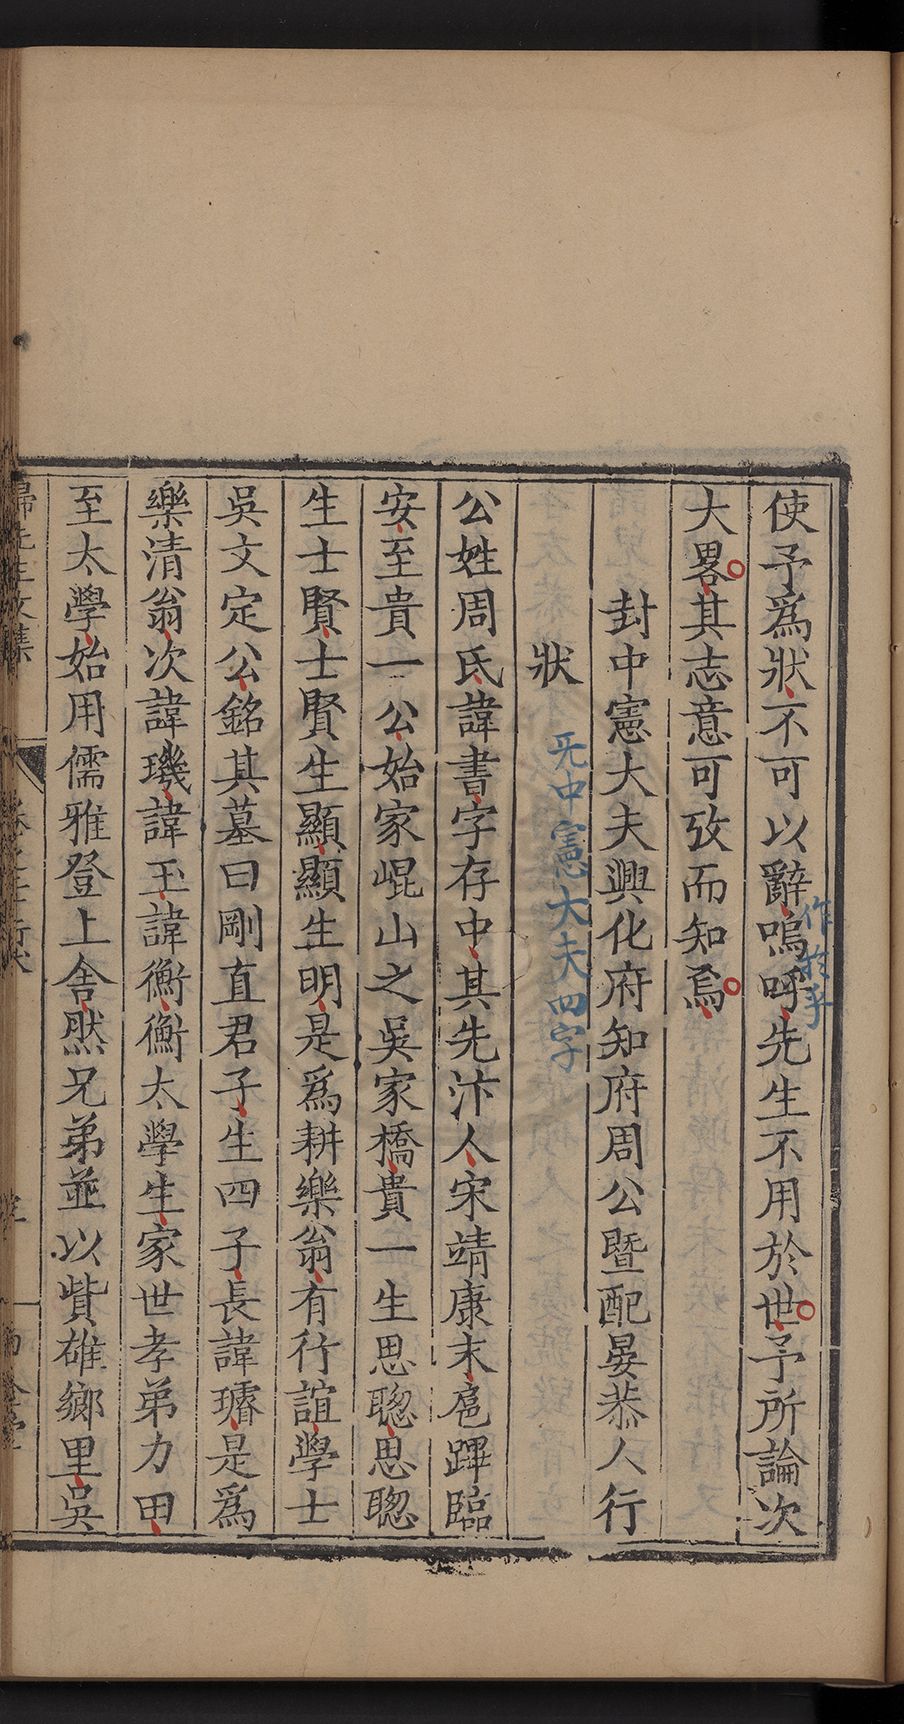 使予爲狀不可以辭嗚呼先生不用於世予所論次
作於乎
大畧其志意可攷而知焉
封中憲大夫興化府知府周公暨配晏恭人行
狀
旡中憲大夫四字
公姓周氏諱書字存中其先汴人宋靖康末扈蹕臨
安至貴一公始家崐山之吳家橋貴一生思聰思聰
生士賢士賢生顯顯生明是爲耕樂翁有行誼學士
吳文定公銘其墓曰剛直君子生四子長諱璿是爲
樂清翁次諱璣諱玉諱衡衡太學生家世孝弟力田
至太學始用儒雅登上舍然兄弟並以貲雄鄉里吳